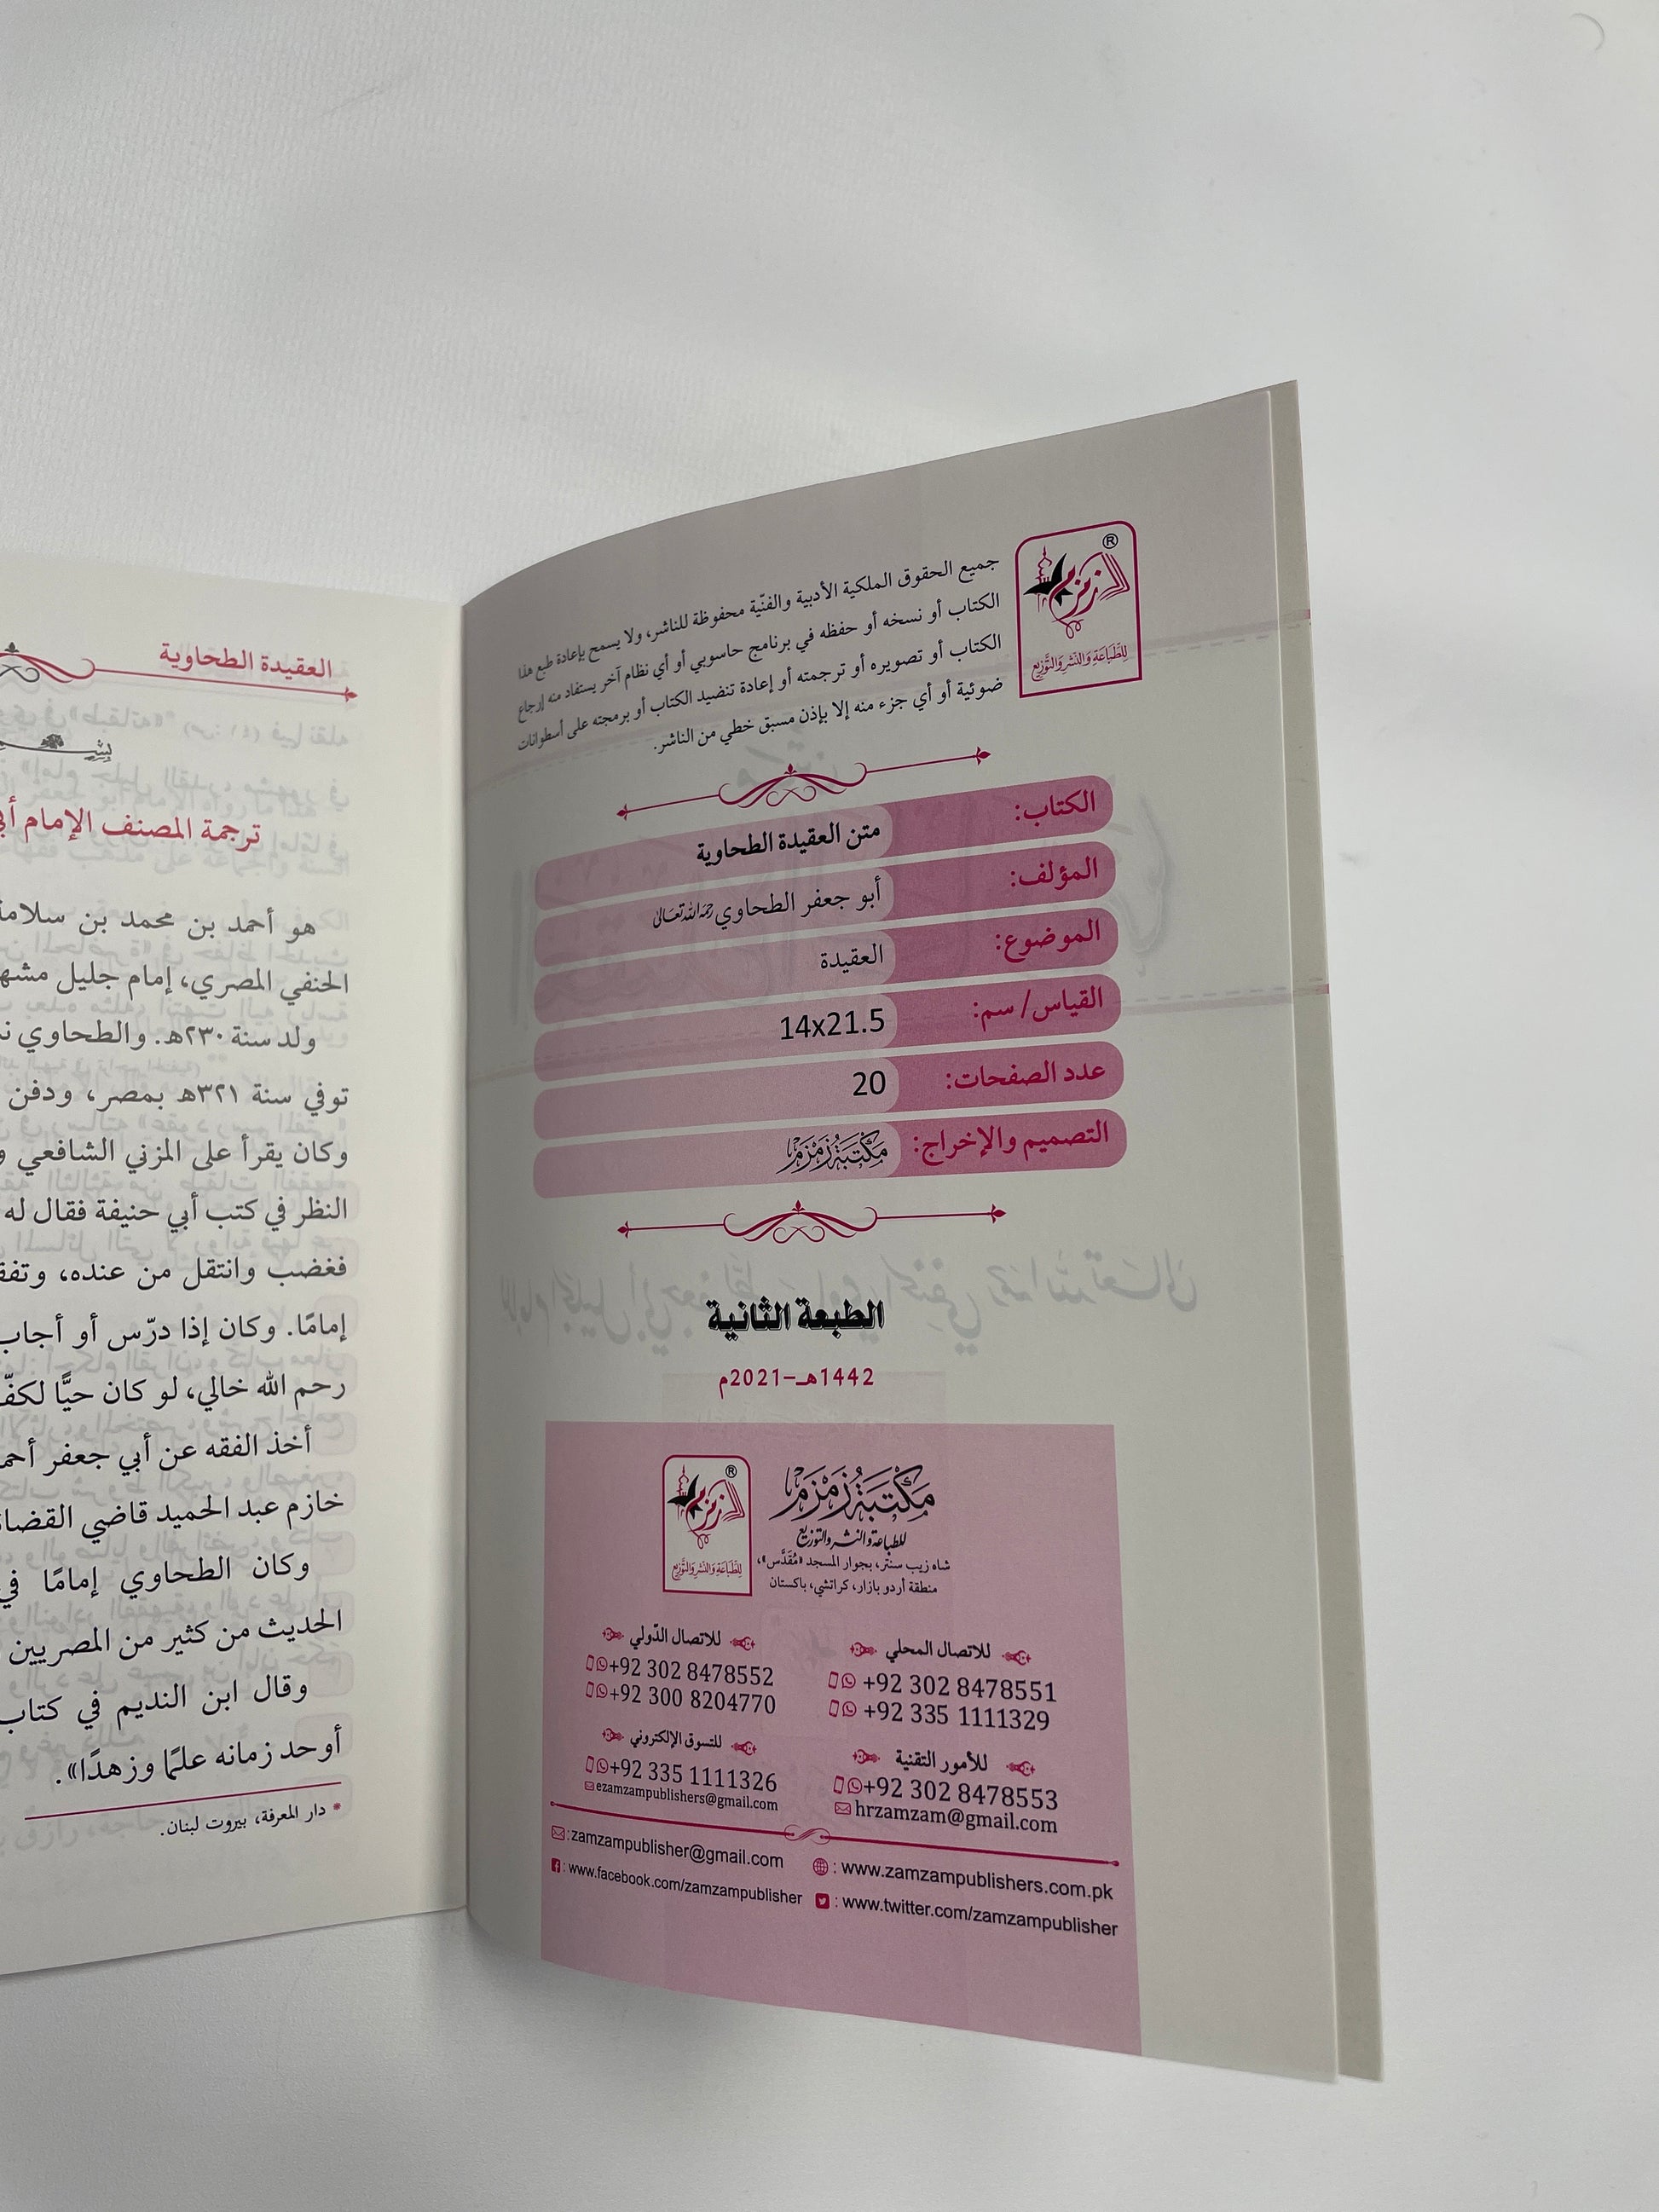 زمزم ®
للطباعة والنشر والتوزيع
جميع الحقوق الملكية الأدبية والفنّية محفوظة للناشر، ولا يسمح بإعادة طبع هذا
الكتاب أو نسخه أو حفظه في برنامج حاسوبي أو أي نظام آخر يستفاد منه إرجاع
الكتاب أو تصويره أو ترجمته أو إعادة تنضيد الكتاب أو برمجته على أسطوانات
ضوئية أو أي جزء منه إلا بإذن مسبق خطي من الناشر.
الكتاب: متن العقيدة الطحاوية
المؤلف: أبو جعفر الطحاوي رحمه الله تعالى
الموضوع: العقيدة
القياس/ سم: 14x21.5
عدد الصفحات: 20
التصميم والإخراج: مكتبة زمزم
الطبعة الثانية
1442هـ-2021م
مكتبة زمزم
للطباعة والنشر والتوزيع
شاه زيب سنتر، بجوار المسجد «مُقَدَّس»،
منطقة أردو بازار، كراتشي، باكستان
زمزم ®
للطباعة والنشر والتوزيع
للاتصال المحلي
+92 302 8478551
+92 335 1111329
للاتصال الدّولي
+92 302 8478552
+92 300 8204770
للأمور التقنية
+92 302 8478553
hrzamzam@gmail.com
للتسوق الإلكتروني
+92 335 1111326
ezamzampublishers@gmail.com
:zamzampublisher@gmail.com
: www.zamzampublishers.com.pk
: www.facebook.com/zamzampublisher
: www.twitter.com/zamzampublisher
العقيدة الطحاوية
ترجمة المصنف الإمام
هو أحمد بن محمد بن سلامة
الحنفي المصري، إمام جليل
ولد سنة ٢٣٠هـ. والطحاوي
توفي سنة ٣٢١هـ بمصر، ودفن
وكان يقرأ على المزني الشافعي
النظر في كتب أبي حنيفة فقال له
فغضب وانتقل من عنده،
إمامًا. وكان إذا درّس أو أجاب
رحم الله خالي، لو كان حيًّا لكفّ
أخذ الفقه عن أبي جعفر
خازم عبد الحميد قاضي
وكان الطحاوي إمامًا في
الحديث من كثير من المصريين
وقال ابن النديم في كتاب
أوحد زمانه علمًا وزهدًا».
* دار المعرفة، بيروت لبنان.